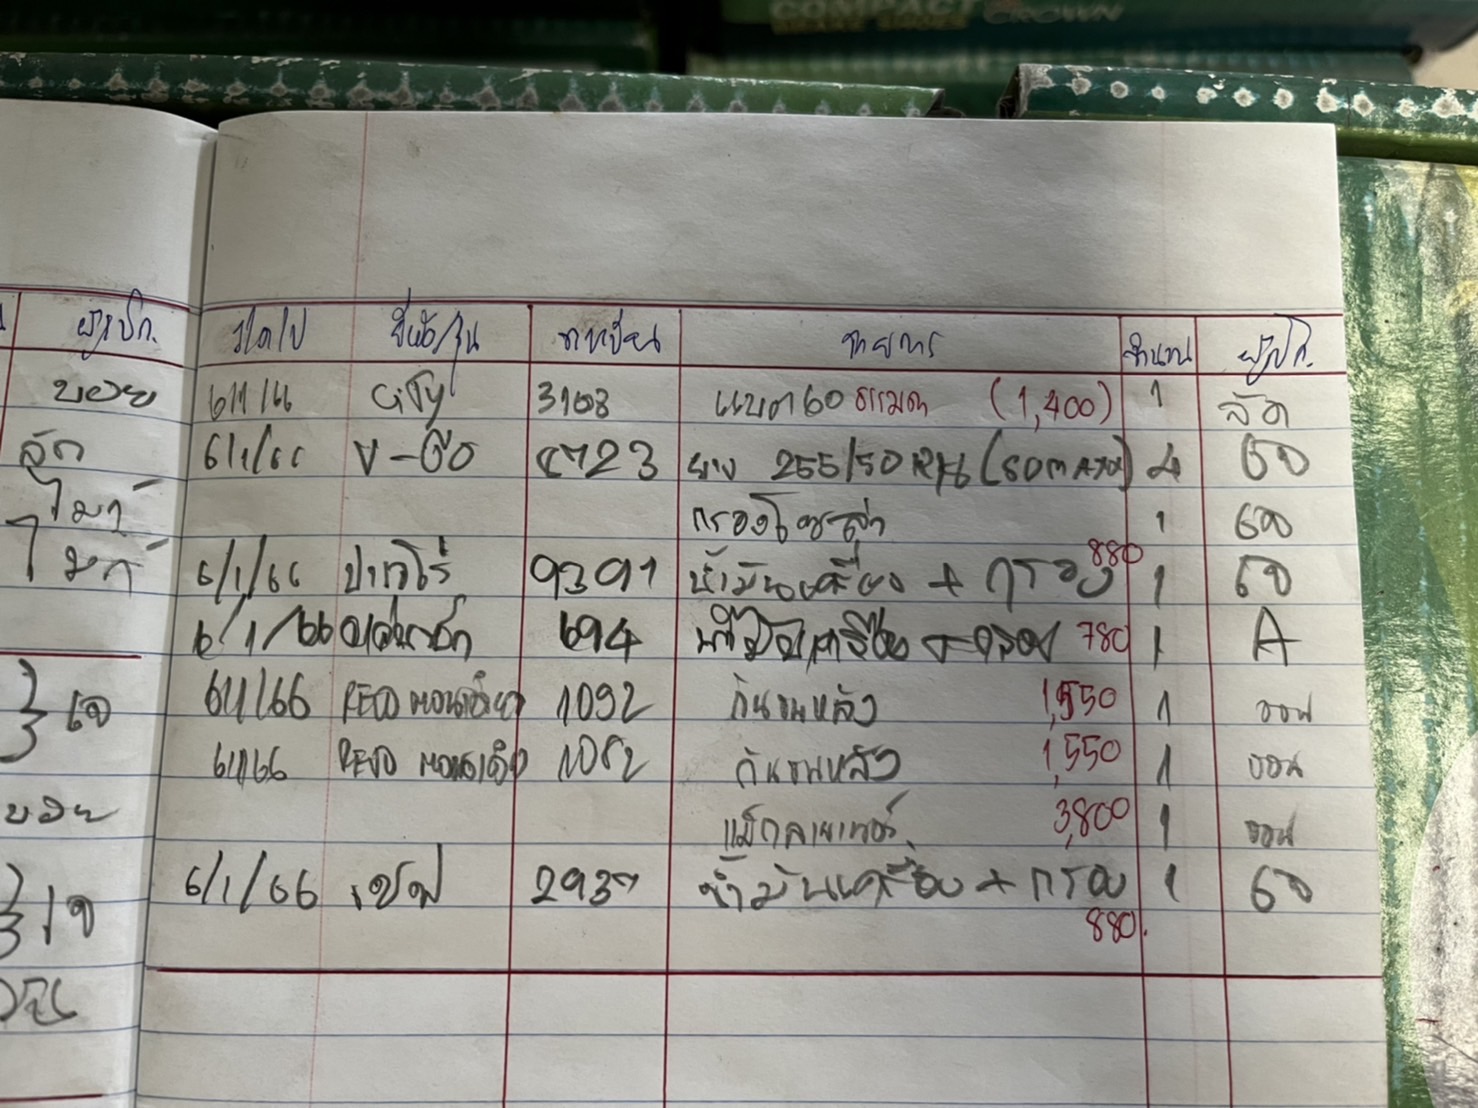 COMPACT CROWN
ว/ด/ป ยี่ห้อ/รุ่น ทะเบียน รายการ จำนวน ผู้เบิก.
บอย 6/1/66 CITY 3108 แบต 60 ธรรมดา (1,400) 1 ลัด
6/1/66 V-ครอ 723 ยาง 255/50 R18 4
กรองโซล่า 1
ไมก์ 6/1/66 ปาเจโร่ 9391 น้ำมันเครื่อง + กรอง 880 1
6/1/66 694 น้ำมันเครื่อง + กรอง 780 1 A
6/1/66 REVO ตอนเดียว 1092 กันชนหลัง 1,550 1 ออน
6/1/66 REVO ตอนเดียว 1082 กันชนหลัง 1,550 1 ออน
บอย แม็กลายเนอร์ 3,800 1 ออน
6/1/66 เชฟ 2937 น้ำมันเครื่อง + กรอง 1
880.